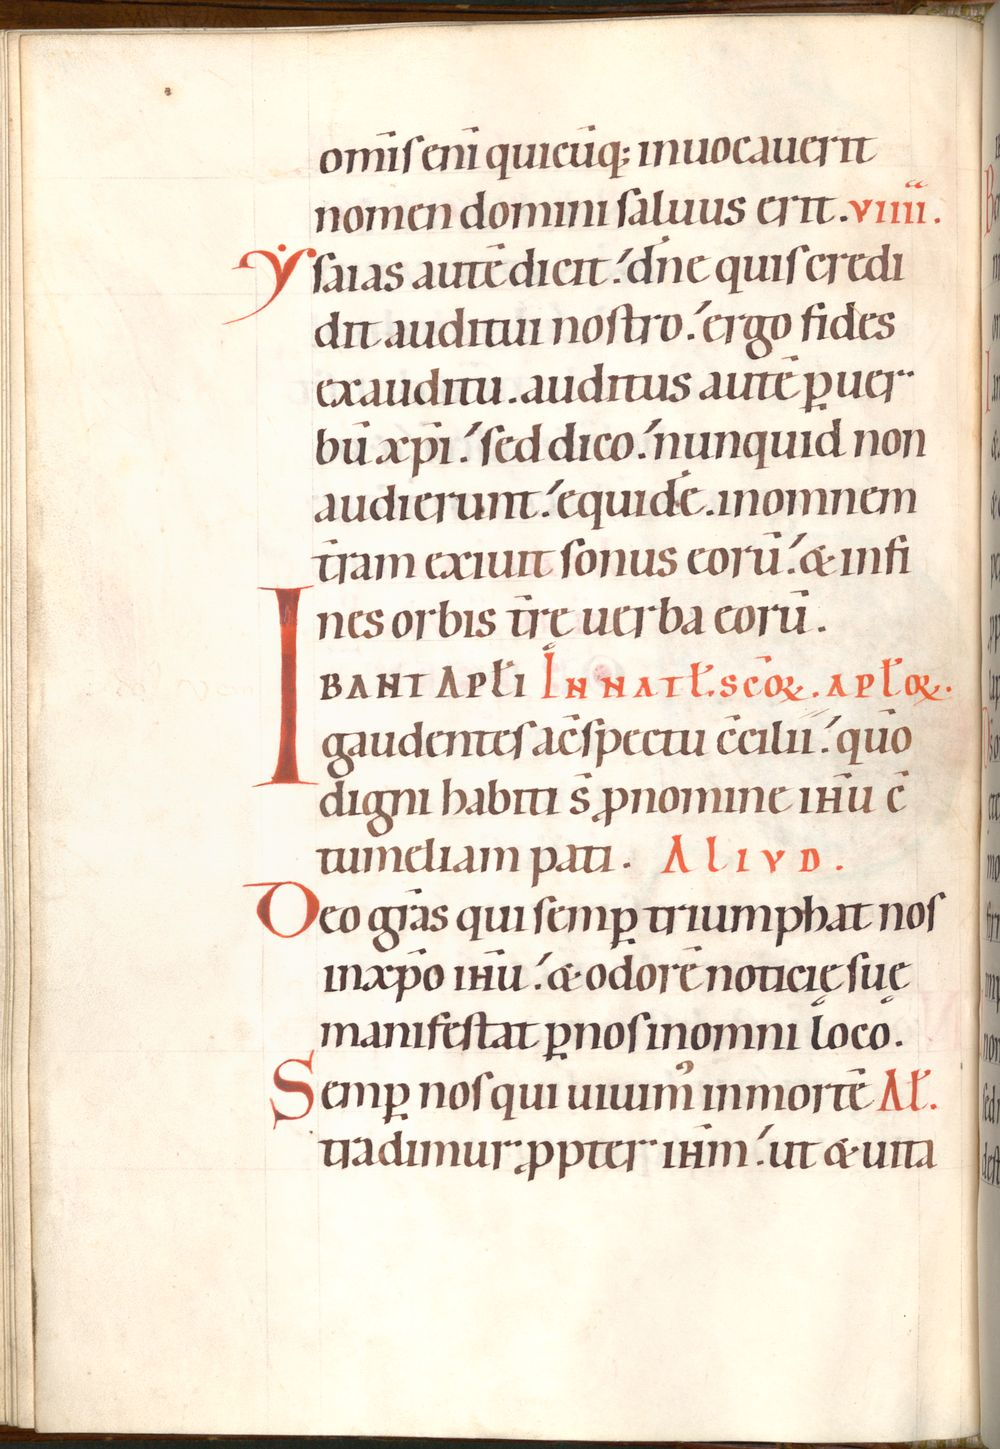 omīs enī quicūq; inuocauerit
nomen domini saluus erit. VIIII.
Ysaias autē dicit: dn̄e quis credi
dit auditui nostro: ergo fides
exauditu. auditus autē ꝑ uer
bū xp̄i: sed dico: nunquid non
audierunt: equidē. inomnem
tr̄am exiuit sonus eorū: & infi
nes orbis tr̄ę uerba eorū.
IBANT APŁI IN NATŁ. SC̄OꝜ. APŁOꝜ.
gaudentes ac̄spectu c̄cilii: qūo
digni habiti s̄ ꝓ nomine ih̄u c̄
tumeliam pati. ALIVD.
Deo gr̄as qui semꝑ triumphat nos
inxp̄o ih̄u: & odorē noticię suę
manifestat ꝑ nos inomni loco.
Semꝑ nos qui uiuim᾽ inmortē AŁ.
tradimur ꝓpter ih̄m: ut & uita